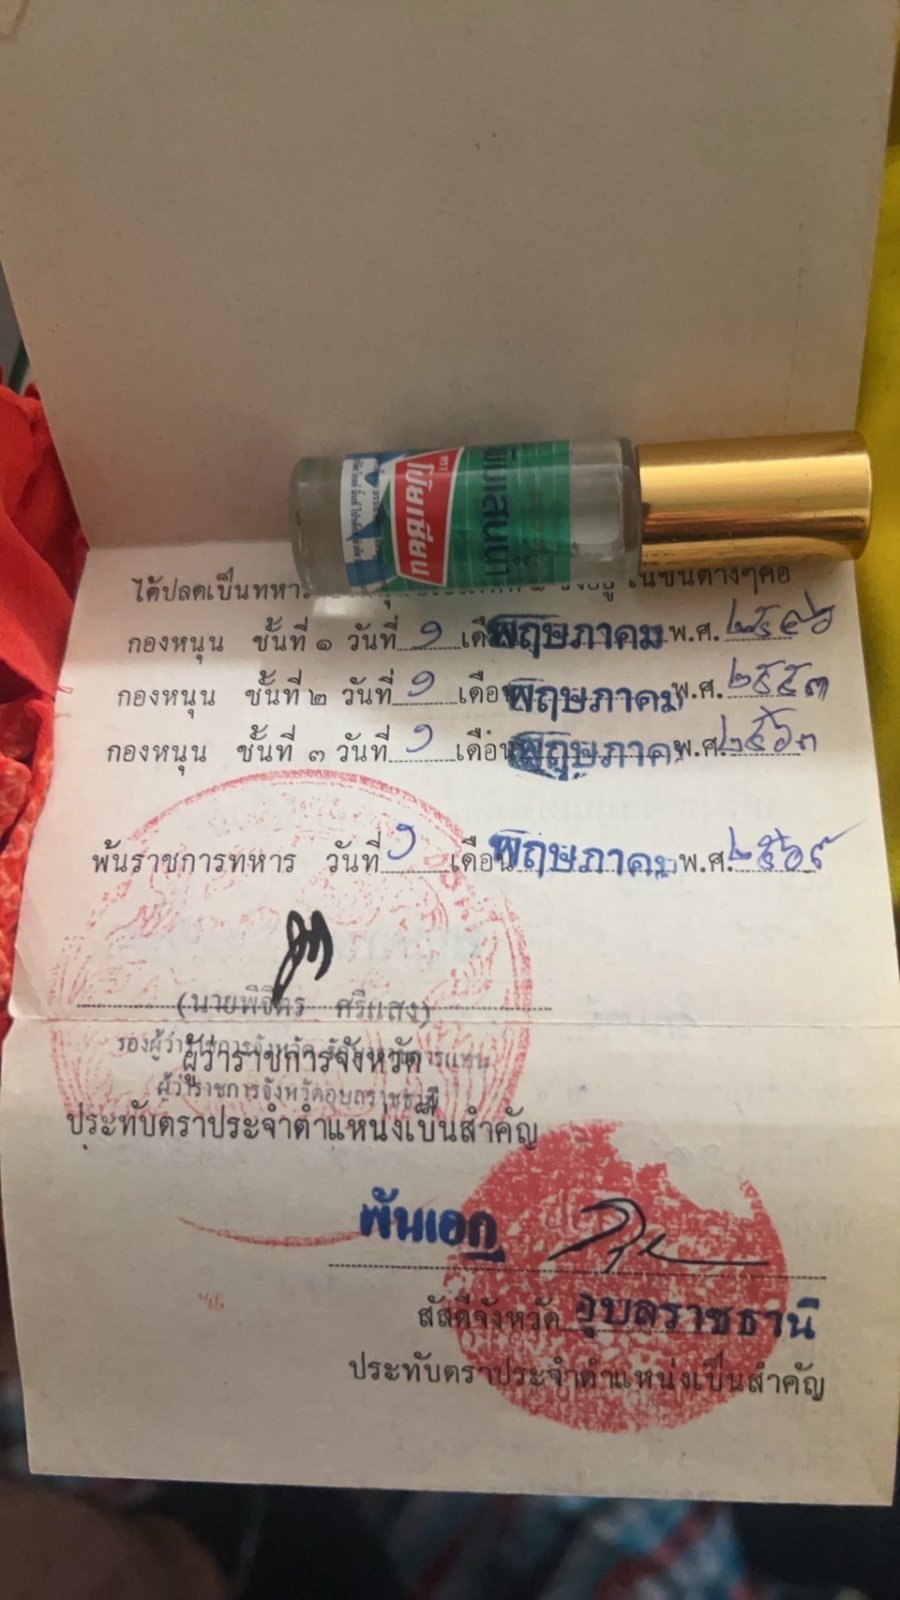 ตรา
โป๊ยเซียน
พิมเสนน้ำ
ได้ปลดเป็นทหาร ในชั้นต่างๆคือ
กองหนุน ชั้นที่ ๑ วันที่ ๑ เดือน พฤษภาคม พ.ศ. ๒๕๔๖
กองหนุน ชั้นที่ ๒ วันที่ ๑ เดือน พฤษภาคม พ.ศ. ๒๕๕๓
กองหนุน ชั้นที่ ๓ วันที่ ๑ เดือน พฤษภาคม พ.ศ. ๒๕๖๓
พ้นราชการทหาร วันที่ ๑ เดือน พฤษภาคม พ.ศ. ๒๕๖๙
(นายพิจิตร ศรีแสง)
รองผู้ว่าราชการจังหวัด รักษาราชการแทน
ผู้ว่าราชการจังหวัด
ผู้ว่าราชการจังหวัดอุบลราชธานี
ประทับตราประจำตำแหน่งเป็นสำคัญ
พันเอก
สัสดีจังหวัด อุบลราชธานี
ประทับตราประจำตำแหน่งเป็นสำคัญ